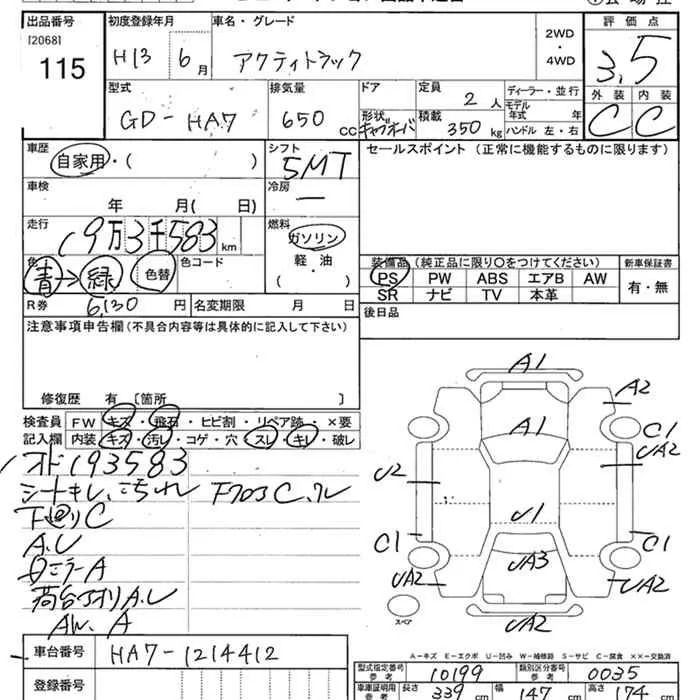 出品番号 初度登録年月 車名・グレード 評価点
[2068]
115
H13 6月 アクティトラック 2WD・4WD 3.5
型式 排気量 ドア 定員 ディーラー・並行 外装 内装
GD-HA7 650cc 2人 モデル年式 年 C C
形状 キャブオーバ 積載 350kg ハンドル 左・右
車歴 シフト セールスポイント (正常に機能するものに限ります)
自家用・( ) 5MT
車検 冷房
年 月( 日) ー
走行 燃料
19万3千583km ガソリン
色 青→緑 色替 色コード 軽油 装備品(純正品に限り〇をつけてください) 新車保証書
・( ) PS PW ABS エアB AW 有・無
R券 6,130円 名変期限 月 日 SR ナビ TV 本革
注意事項申告欄(不具合内容等は具体的に記入して下さい) 後日品
修復歴 有 〔箇所 〕
検査員 FW キズ・飛石・ヒビ割・リペア跡・×要
記入欄 内装 キズ・汚レ・コゲ・穴・スレ・キレ・破レ
オド193583
シートキレ、こられ
下回りC
A.U
荷台アオリA.U
AW.A
A1
A2
A1
C1
UA2
U2
U1
C1
C1
UA3
UA2
UA2
UA2
スペア
A-キズ E-エクボ U-凹み W-補修跡 S-サビ C-腐食 ××-交換済
車台番号 HA7-1214412
型式指定番号 参考 10199 類別区分番号 参考 0035
登録番号
車庫証明用 参考 長さ 339cm 幅 147cm 高さ 174cm